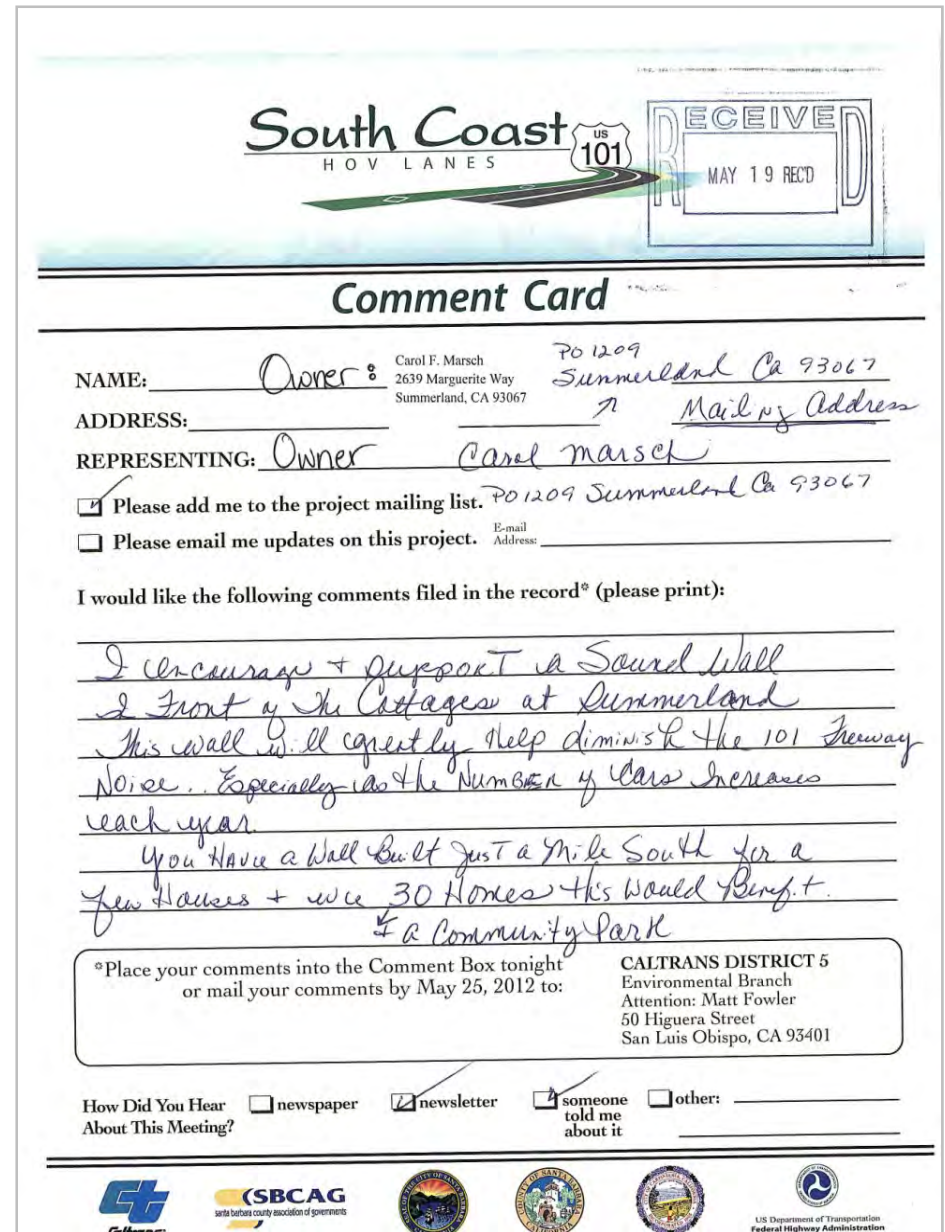 South Coast
HOV LANES
US
101
RECEIVED
MAY 19 REC'D
Comment Card
NAME: Owner:
Carol F. Marsch
2639 Marguerite Way
Summerland, CA 93067
PO 1209
Summerland Ca 93067
Mailing Address
ADDRESS:
REPRESENTING: Owner Carol Marsch
Please add me to the project mailing list. PO 1209 Summerland Ca 93067
Please email me updates on this project. E-mail Address:
I would like the following comments filed in the record* (please print):
I encourage + support a Sound Wall
I Front of the Cottages at Summerland
This wall will greatly help diminish the 101 Freeway
Noise.. Especially as the Number of Cars Increases
each year.
You Have a Wall Built Just a Mile South for a
few Houses + we 30 Homes this Would Benefit.
+ a Community Park
*Place your comments into the Comment Box tonight
or mail your comments by May 25, 2012 to:
CALTRANS DISTRICT 5
Environmental Branch
Attention: Matt Fowler
50 Higuera Street
San Luis Obispo, CA 93401
How Did You Hear About This Meeting?
newspaper
newsletter
someone told me about it
other:
Caltrans
SBCAG
santa barbara county association of governments
US Department of Transportation
Federal Highway Administration